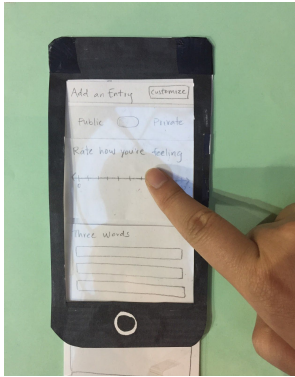 Add an Entry
Customize
Public Private
Rate how you're feeling
0
Three Words